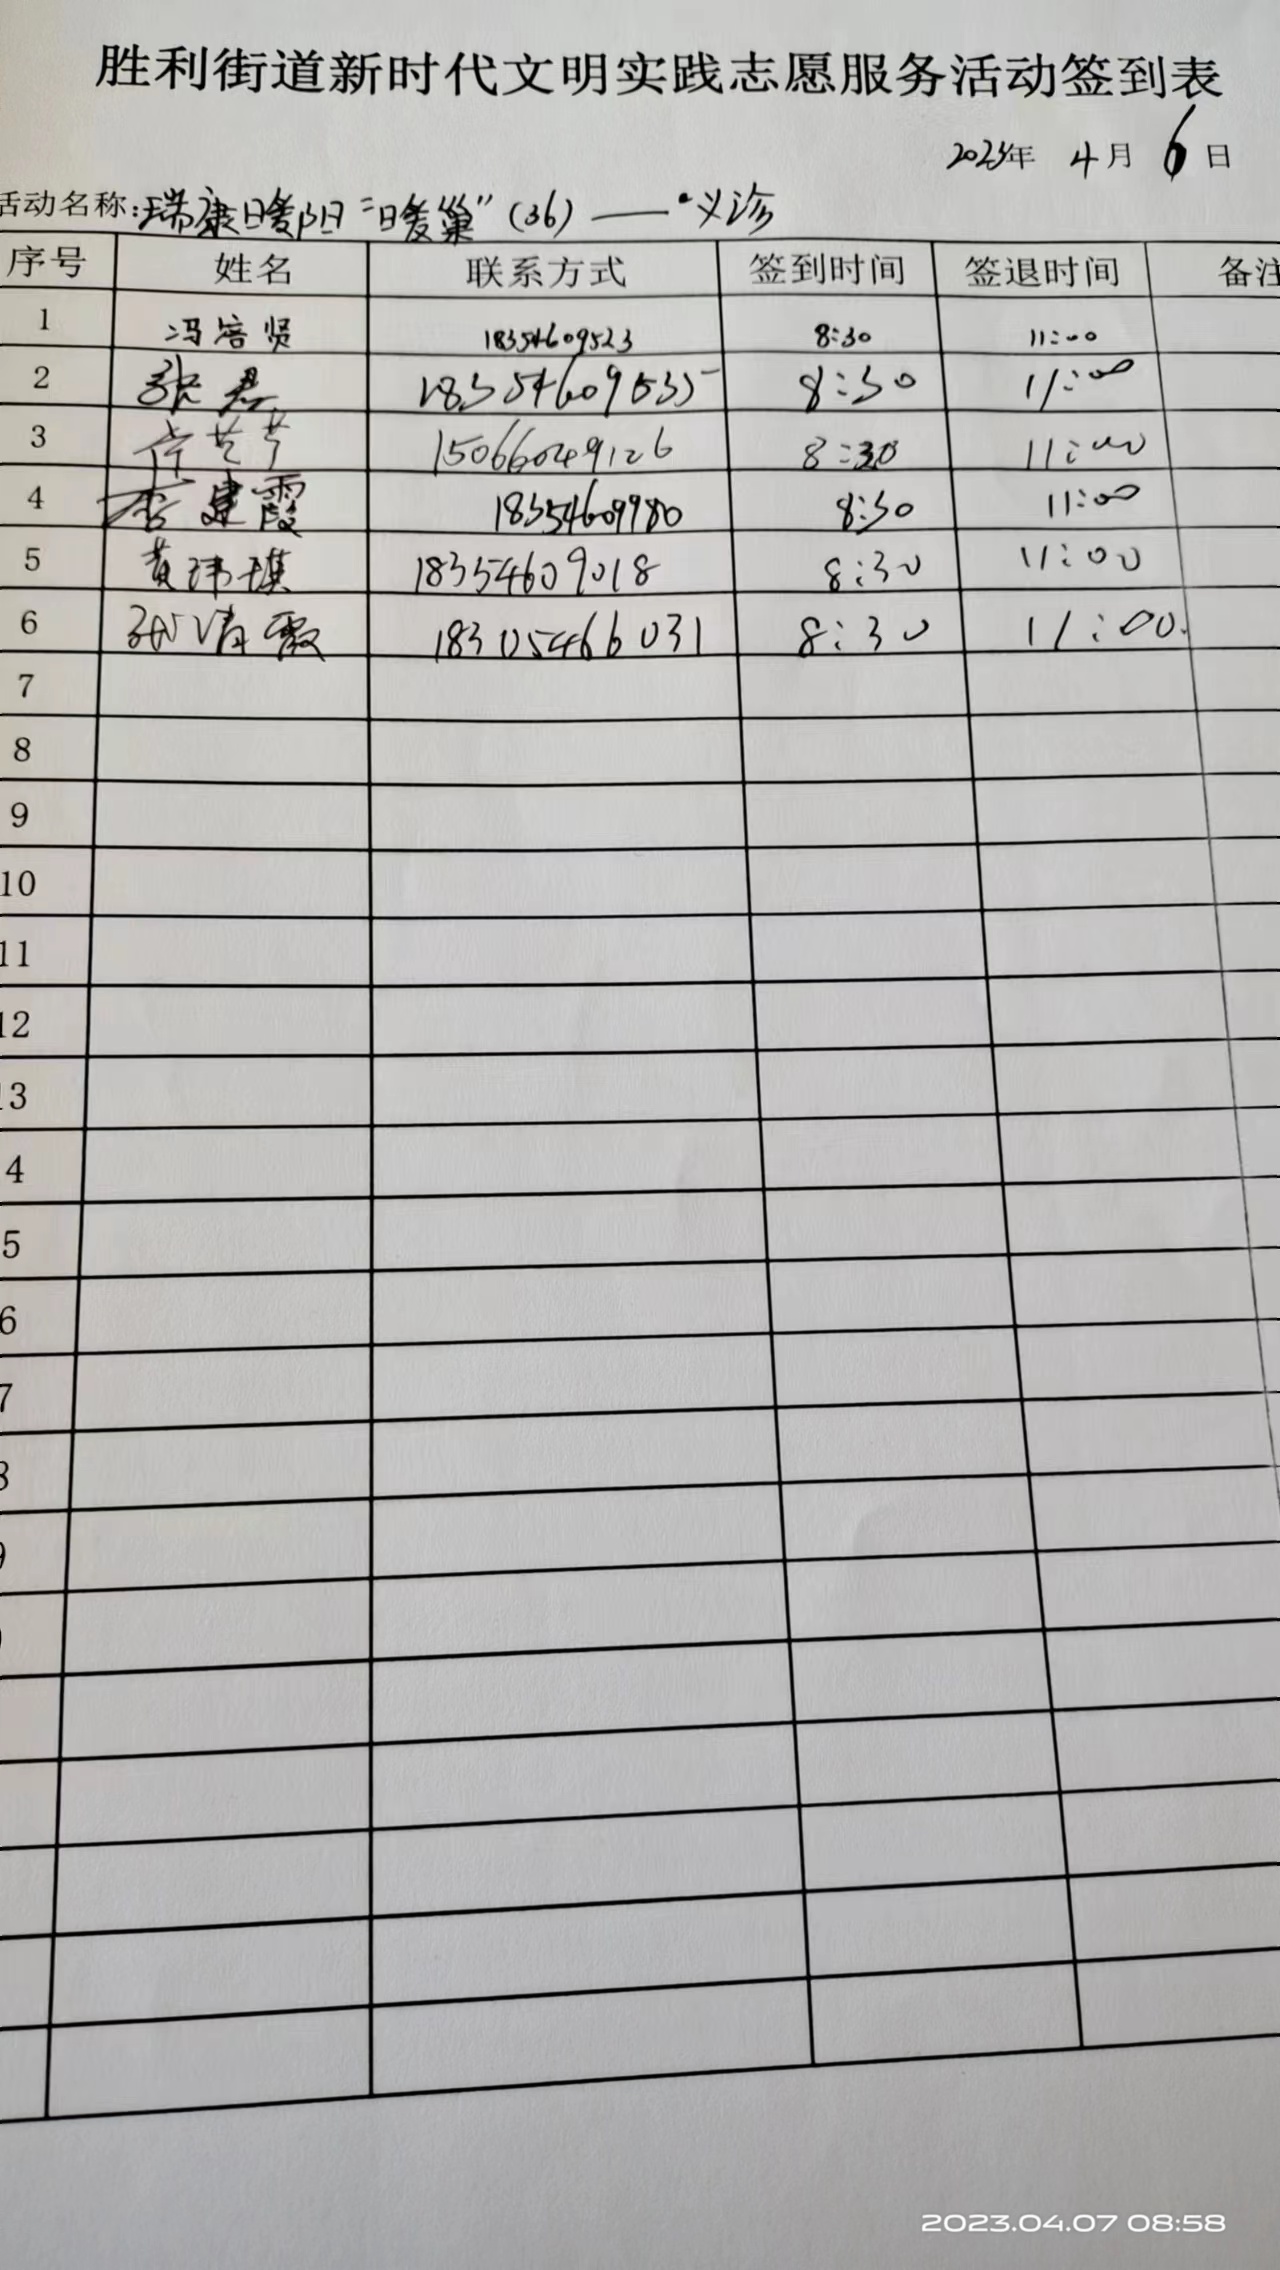 胜利街道新时代文明实践志愿服务活动签到表
2023年 4月 6日
活动名称:瑞康暖阳"暖巢"(36)——义诊
序号 姓名 联系方式 签到时间 签退时间 备注
1 冯培贤 18354609523 8:30 11:00
2 张君 18354609535 8:30 11:00
3 许芝芳 15066049126 8:30 11:00
4 李建霞 18354609980 8:30 11:00
5 黄玮琪 18354609018 8:30 11:00
6 孙清霞 18305466031 8:30 11:00.
7
8
9
10
11
12
13
4
5
6
7
8
9
2023.04.07 08:58